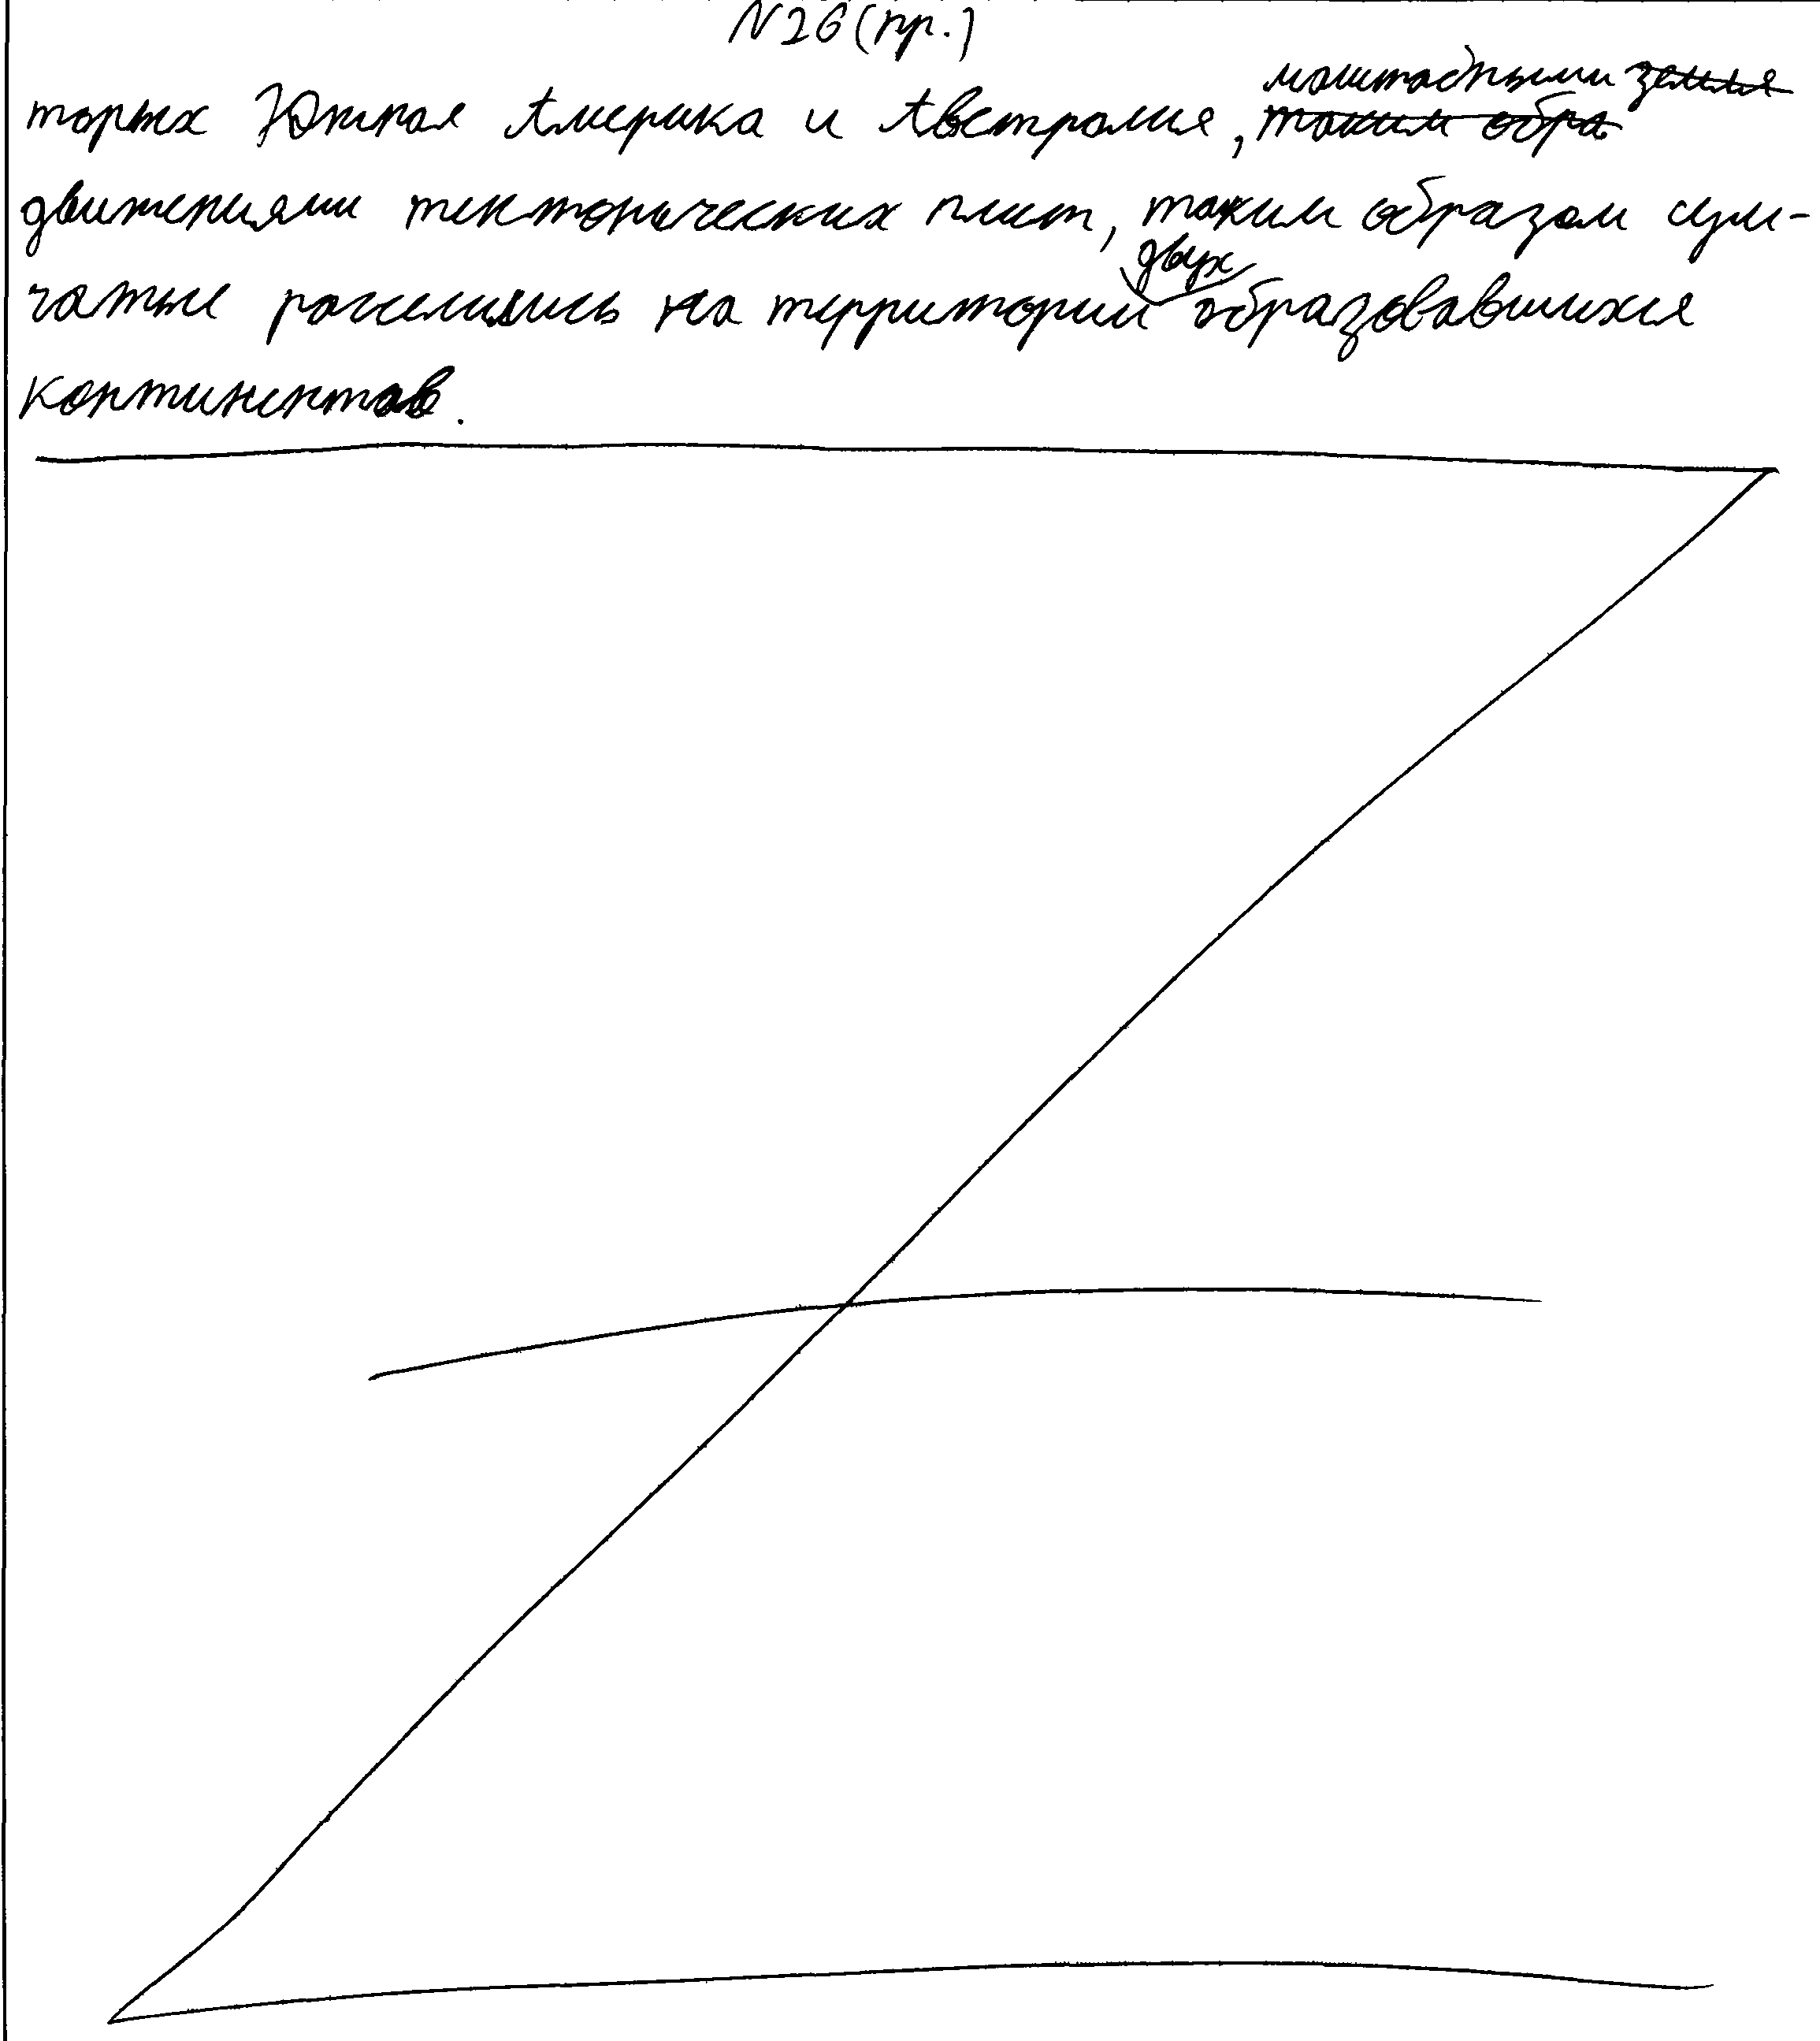 N26 (пр.)
торых Южная Америка и Австралия, ~~таким обра~~ масштабными ~~земля~~
движениями тектонических плит, таким образом сум-
чатые расселились на территории двух образовавшихся
континентов.